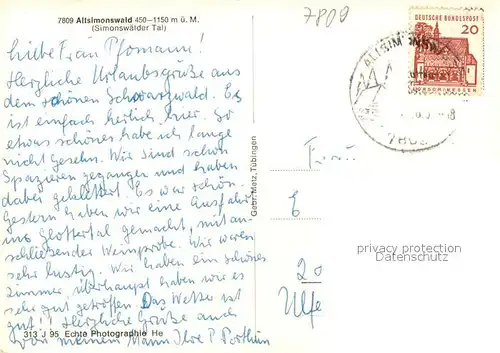 7809 Altsimonswald 450–1150 m ü. M.
(Simonswälder Tal)
7809
Liebe Frau Pfomann!
Herzliche Urlaubsgrüße aus
dem schönen Schwarzwald. Es
ist einfach herlich hier. So
etwas schönes habe ich lange
nicht Gesehn. Wir sind schon
Spazieren gegangen und haben
dabei geklettert. Es war schön.
Gestern haben wir eine Ausfahrt
ins Glottertal gemacht, mit an-
schließender Weinprobe. Wir waren
sehr lustig. Wir haben ein schönes
Zimmer überhaupt haben wir es
sehr gut getroffen. Das Wetter ist
gut! Herzliche Grüße auch
von meinem Mann Ihre P.
313 J 95 Echte Photographie He
Gebr. Metz, Tübingen
DEUTSCHE BUNDESPOST
20
ALTSIMONSW
Frau
E
20
Ulfe
privacy protection
watermark